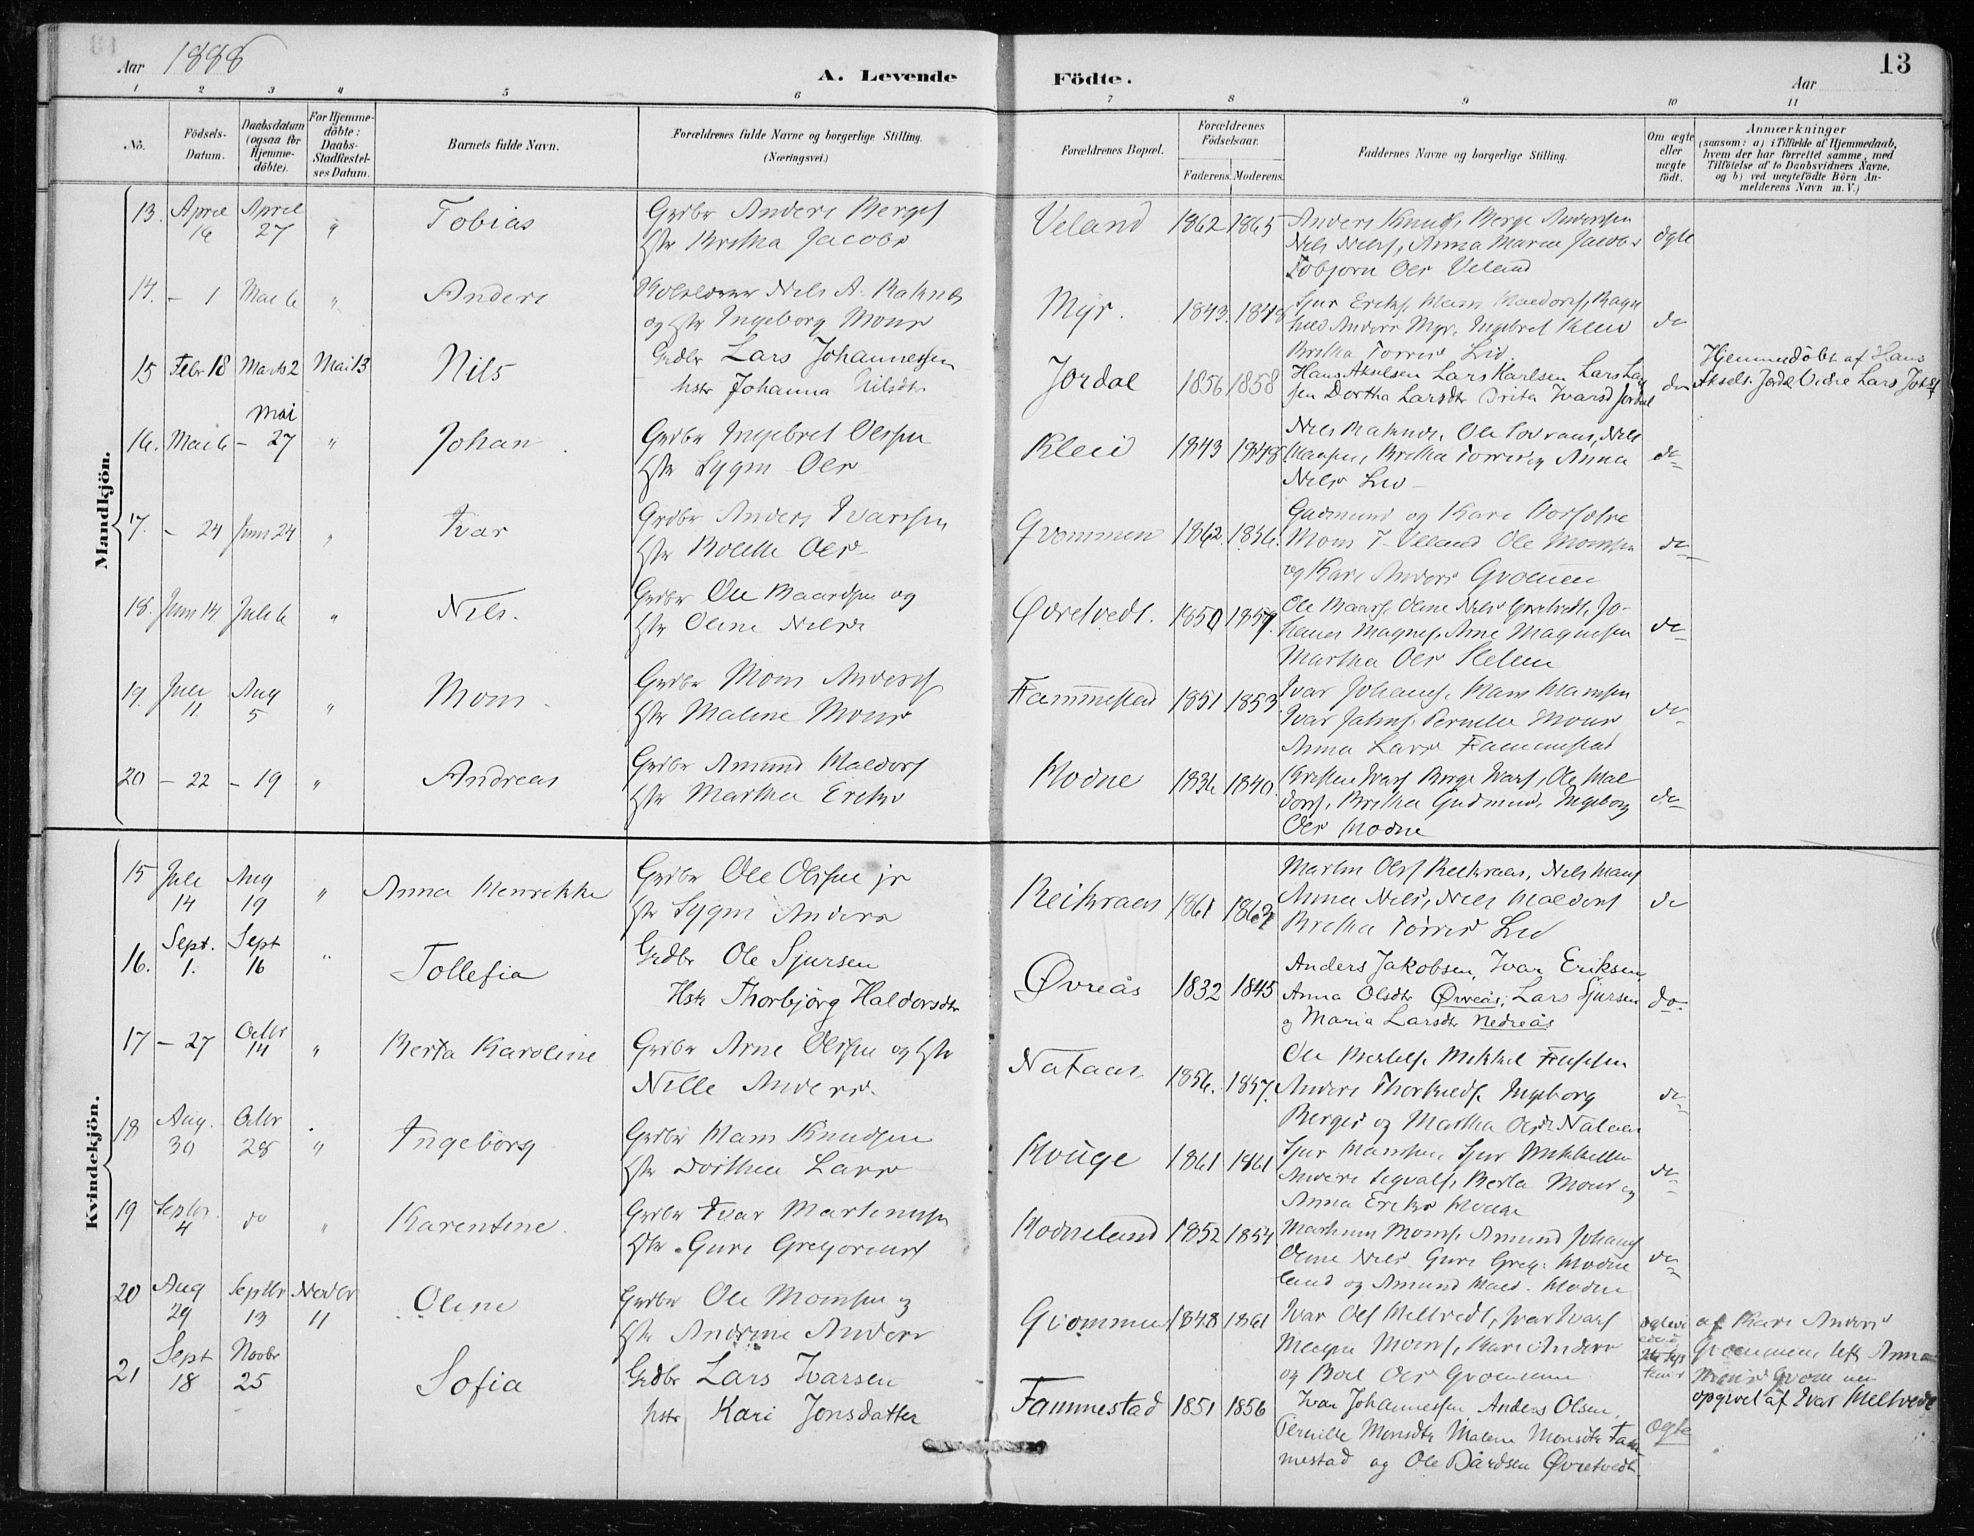 Aar 1888
A. Levende
Födte.
Aar
13
1 2 3 4 5 6 7 8 9 10 11
No.
Födsels-
Datum.
Daabsdatum
(ogsaa for
Hjemme-
döbte).
For Hjemme-
döbte:
Daabs-
Stadfæstel-
ses Datum.
Barnets fulde Navn.
Forældrenes fulde Navne og borgerlige Stilling.
(Næringsvei.)
Forældrenes Bopæl.
Forældrenes
Födselsaar.
Faderens. Moderens.
Faddernes Navne og borgerlige Stilling.
Om ægte
eller
uægte
födt.
Anmærkninger
(saasom: a) i Tilfælde af Hjemmedaab,
hvem der har forrettet samme, med
Tilföielse af to Daabsvidners Navne,
og b) ved uægtefödte Börn An-
melderens Navn m. V.)
Mandkjön.
13. April 16 April 27 " Tobias
Grdbr Anders Bergesf
Hstr Britha Jacobs
Veland 1862 1865
Anders Knuds, Berge Anderssen
Nils Nilsf, Anna Maria Jacobs
Tobjorn Ols Veland
ægte
14. - 1 Mai 6 " Anders
Nils A.
og Hstr Ingeborg Mons
Myr. 1843. 1848
Sjur Eriksf, Hans Haldorsf, Ragn
hild Anders Myr, Ingebret Kleiv
Britha Torris Lid
do
15 Febr 18 Marts 2 Mai 13 Nils
Grdbr Lars Johannessen
hstr Johanna Nilsdtr
Jordal 1856 1858
Hans Akselsen Lars Karlsen Lars Lar
sen Dortha Larsdtr Brita Ivarsd Jordal
do
Hjemmedöbt af Hans
Aksels. Jordal Vidne Lars Johsf
16. Mai 6 Mai - 27 " Johan.
Grdbr Ingebret Olssen
Hstr Sygni Ols
Kleiv 1843 1848
Britha Torris og Anna
Nils Lid
do
17. - 24 Juni 24 " Ivar
Grdbr Anders Ivarssen
Hstr Bolette Ols
Gvommen 1862. 1856.
Gudmund og Kari
Mons T. Veland Ole Monssen
og Kari Anders Gvommen
do
18. Juni 14 Juli 6 " Nils.
Grdbr Ole Baardsen og
Hstr Oline Nils
Øvretvedt. 1850 1857.
Ole Baarsf, Oline Nils Øvretvedt, Jo-
hannes Magnesf, Arne Magnessen
Martha Ols
do
19. Juli 11. Aug 5 " Mons.
Grdbr Mons Andersf
Hstr Malene Mons
Fammestad 1851 1853
Ivar Johansf, Hans Hanssen
Ivar Johnsf, Pernille Mons
Anna Lars Fammestad
do
20 - 22 - 19 " Andreas
Grdbr Amund Haldorsf
Hstr Martha Eriks
Hodne 1836 1840.
Kristen Ivarsf Berge Ivarsf, Ole Hal
dorsf, Britha Gudmund, Ingeborg
Ols Hodne
do
Kvindekjön.
15 Juli 14 Aug 19 " Anna Henrikke
Grdbr Ole Olssen jr
Hstr Sygni Anders
Reikraas 1861 1862
Martin Olsf Reikraas, Nils Hansf
Anna Nils, Nils Haldorsf
Britha Torris Lid
do
16. Sept. 1. Sept 16 " Tollefia
Grdbr Ole Sjursen
Hstr Thorbjörg Haldorsdtr
Øvreås 1832 1845
Anders Jakobsen, Ivar Eriksen,
Anna Olsdtr Øvreås, Lars Sjursen
og Maria Larsdtr Nedreås
do.
17 - 27 Octbr 14 " Berta Karoline
Grdbr Arne Olssen og Hstr
Nille Anders.
Nataas 1856. 1857.
Anders Thorkildsf. Ingeborg
Berges og Martha Ols Nataas
do
18 Aug. 30 Octbr 28 " Ingeborg
Grdbr Hans Knudssen
Hstr Dorthea Lars
Houge 1861 1861
Sjur Hanssen Sjur Mikkelsen
Anders Sigvalsf, Berta Mons og
Anna Eriks Houge
do
19 Septbr. 4 do " Karentine.
Grdbr Ivar Martinussen
Hstr Guri Gregoriusf
Hodneland 1852 1854
Martinus Monsf, Amund Johansf
Oline Nils Guri Greg: Hodne
land og Amund Hald. Hodne
do
20 Aug 29 Septbr 13 Novbr 11 Oline
Grdbr Ole Monssen og
Hstr Andrine Anders
Gvommen 1848 1861
Ivar Olsf Meltvedt, Ivar Ivarsf
Magne Monsf, Kari Anders
og Boel Ols Gvommen
af Kari Anders
Gvommen, Anna
opgivet af Ivar Meltvedt
21 Sept 18 Novbr 25 Sofia
Grdbr Lars Ivarsen
hstr Kari Jonsdatter
Fammestad 1851 1856
Ivar Johannessen Anders Olsen,
Pernille Monsdtr Malene Monsdtr Fam
mestad og Ole Bårdsen Øvretvedt.
Ægte
"